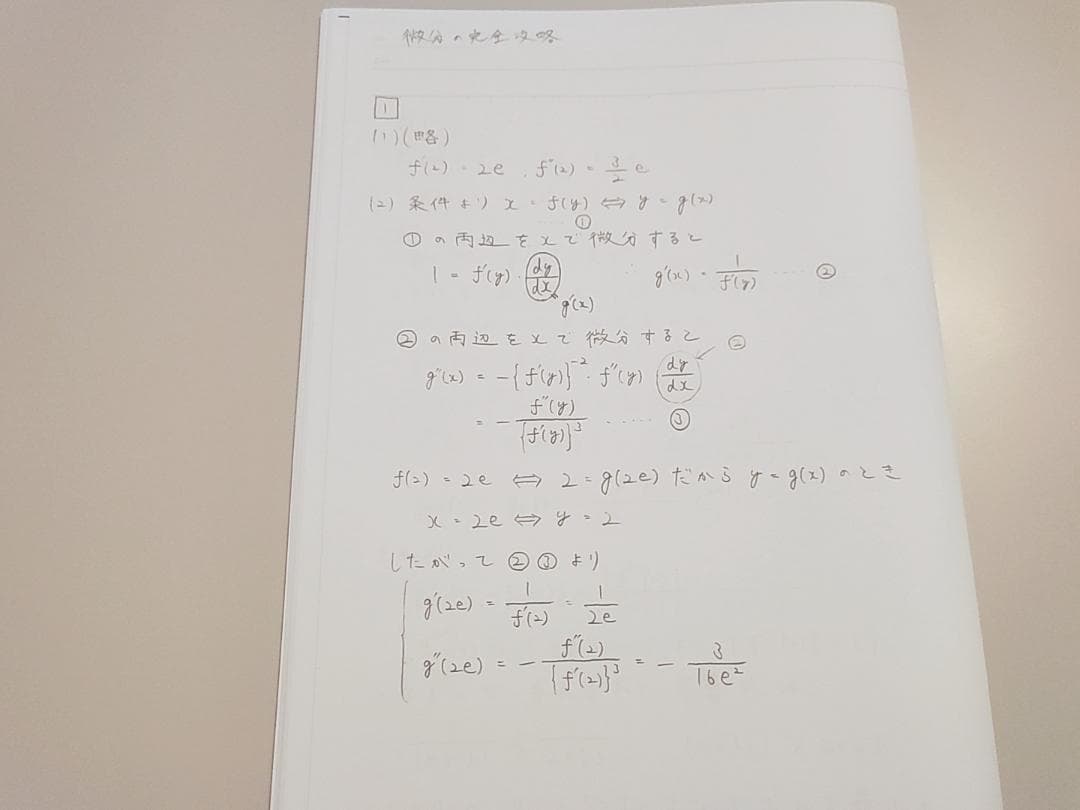 微分の完全攻略
1
(1)(略)
f'(2) = 2e , f''(2) = 3/2 e
(2) 条件より x = f(y) ⇔ y = g(x)
①
①の両辺をxで微分すると
1 = f'(y)・dy/dx ∴ g'(x) = 1/f'(y) ‥‥ ②
g'(x)
②の両辺をxで微分すると ②
g''(x) = -{f'(y)}^-2・f''(y) dy/dx
= - f''(y)/{f'(y)}^3 ‥‥‥ ③
f(2) = 2e ⇔ 2 = g(2e) だから y = g(x) のとき
x = 2e ⇔ y = 2
したがって ② ③ より
g'(2e) = 1/f'(2) = 1/2e
g''(2e) = - f''(2)/{f'(2)}^3 = - 3/16e^2